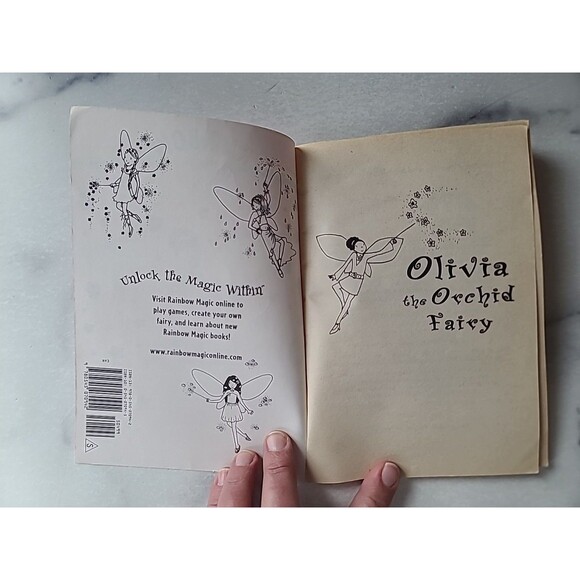 Unlock the Magic Within
Visit Rainbow Magic online to
play games, create your own
fairy, and learn about new
Rainbow Magic books!
www.rainbowmagiconline.com
S
Olivia
the Orchid
Fairy